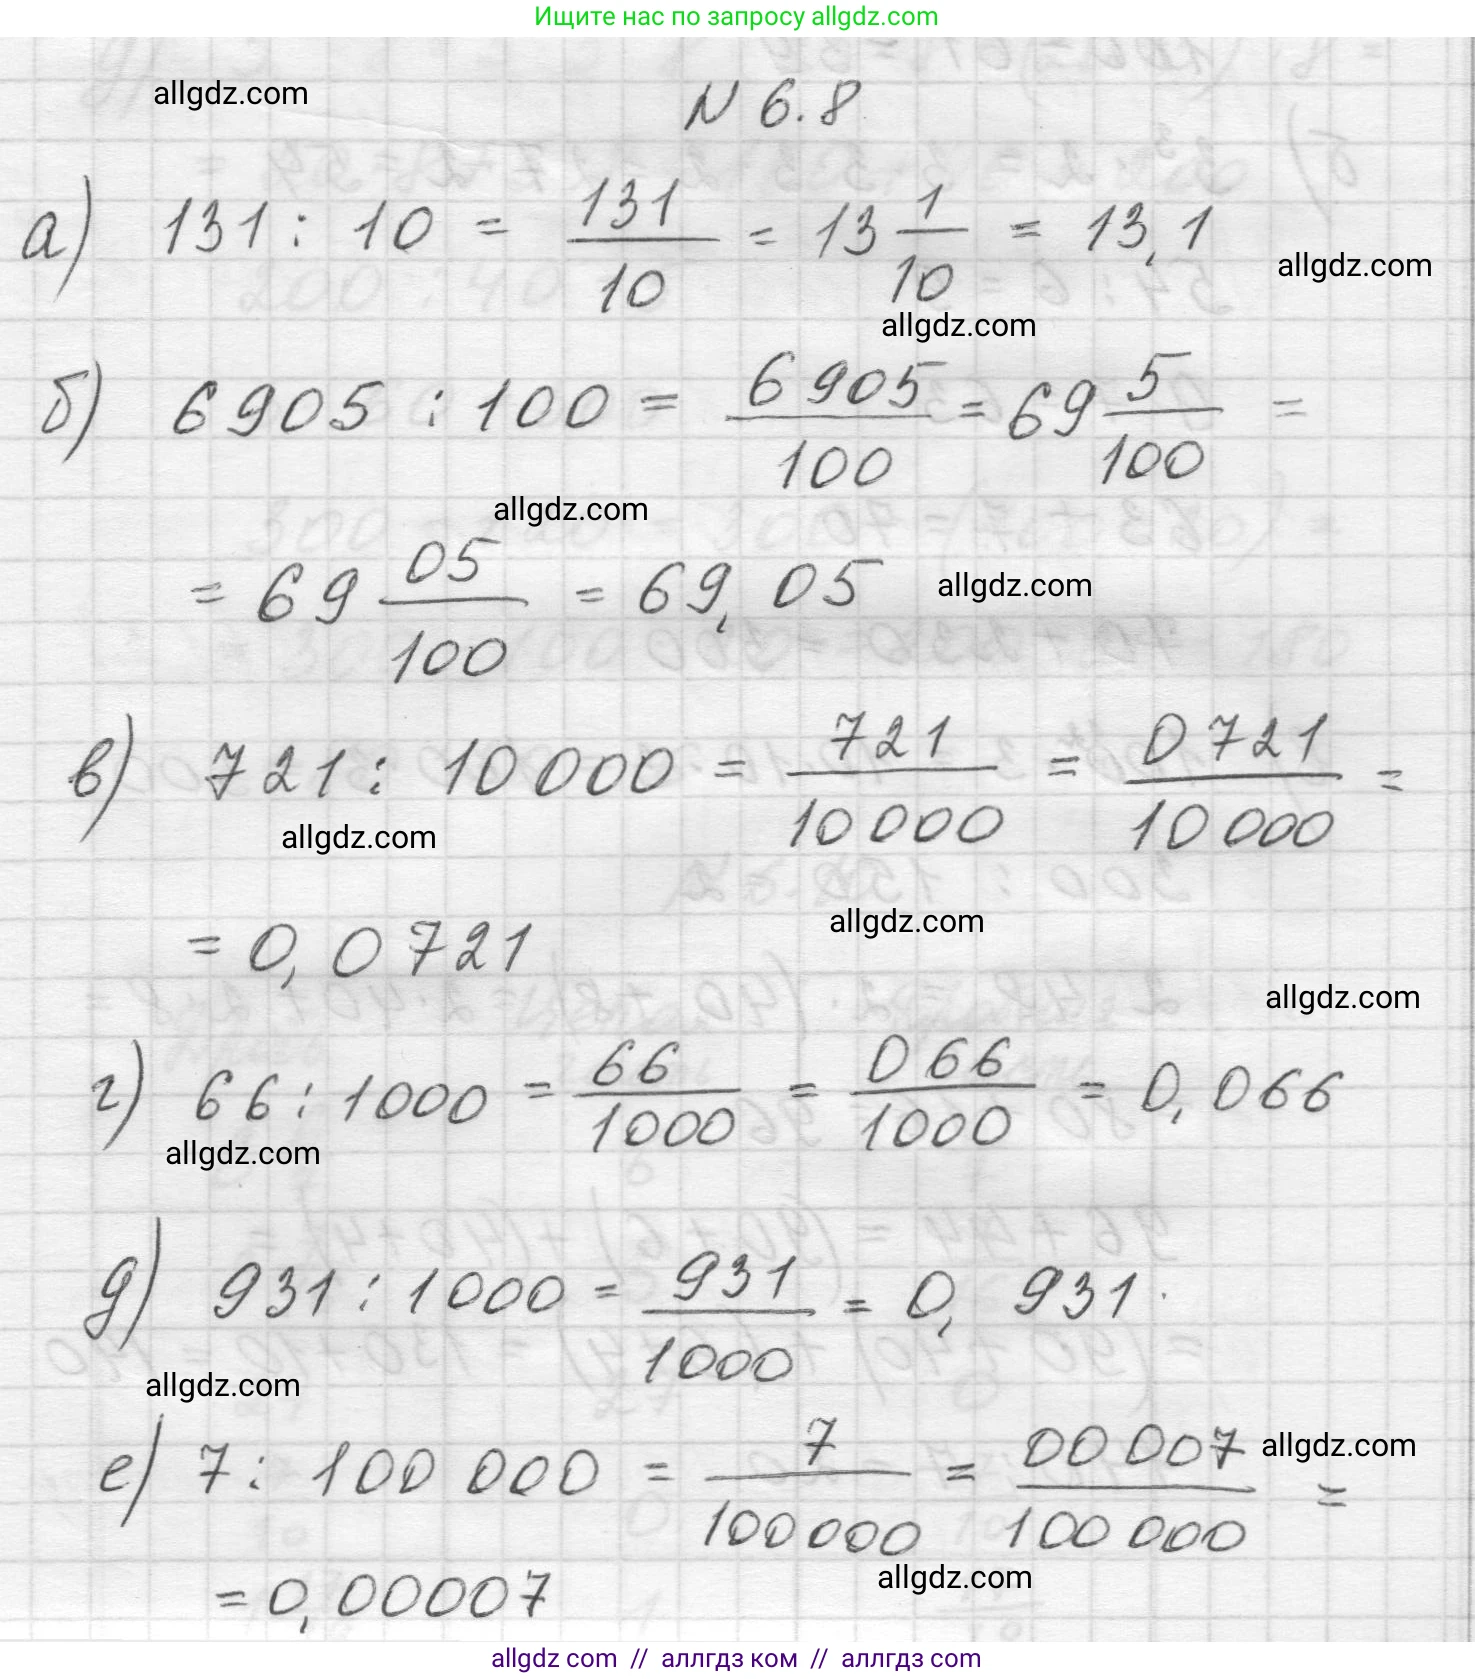 Ищите нас по запросу allgdz.com
allgdz.com
N 6.8
а) 131 : 10 = 131/10 = 13 1/10 = 13,1
allgdz.com
allgdz.com
б) 6905 : 100 = 6905/100 = 69 5/100 =
allgdz.com
= 69 05/100 = 69,05
allgdz.com
в) 721 : 10 000 = 721/10 000 = 0721/10 000 =
allgdz.com
= 0,0721
allgdz.com
allgdz.com
г) 66 : 1000 = 66/1000 = 066/1000 = 0,066
allgdz.com
д) 931 : 1000 = 931/1000 = 0,931
allgdz.com
е) 7 : 100 000 = 7/100 000 = 00 007/100 000 =
allgdz.com
allgdz.com
= 0,00007
allgdz.com // аллгдз ком // аллгдз.com